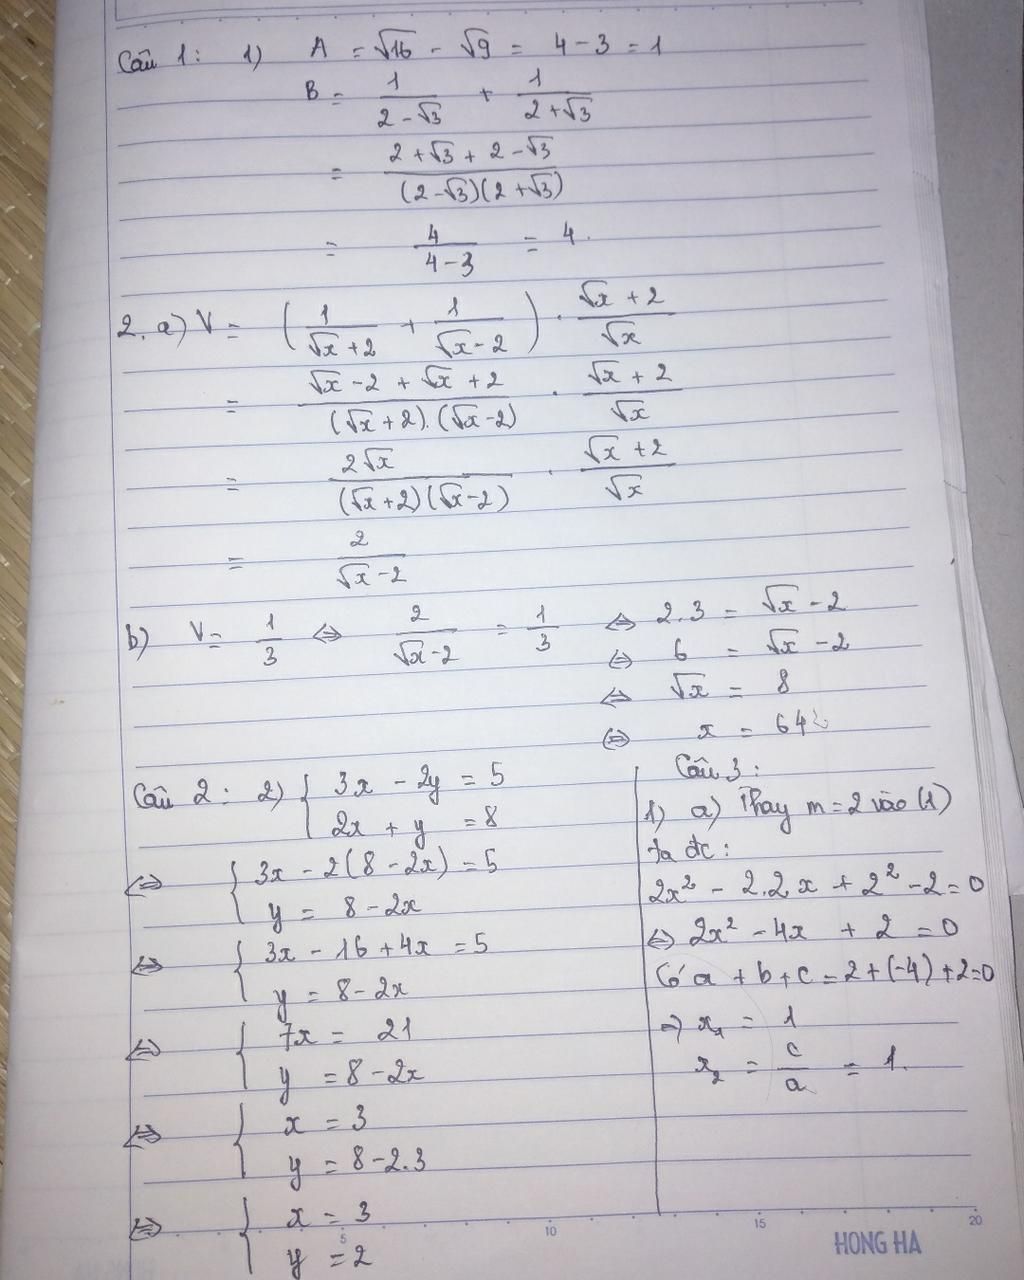 Câu 1: 1) A = √16 - √9 = 4 - 3 = 1
B = 1/(2 - √3) + 1/(2 + √3)
= (2 + √3 + 2 - √3)/((2 - √3)(2 + √3))
= 4/(4 - 3) = 4.
2. a) V = (1/(√x + 2) + 1/(√x - 2)) . (√x + 2)/√x
= (√x - 2 + √x + 2)/((√x + 2).(√x - 2)) . (√x + 2)/√x
= 2√x/((√x + 2)(√x - 2)) . (√x + 2)/√x
= 2/(√x - 2)
b) V = 1/3 ⇔ 2/(√x - 2) = 1/3 ⇔ 2.3 = √x - 2
⇔ 6 = √x - 2
⇔ √x = 8
⇔ x = 64
Câu 2: 2) { 3x - 2y = 5
2x + y = 8
⇔ { 3x - 2(8 - 2x) = 5
y = 8 - 2x
⇔ { 3x - 16 + 4x = 5
y = 8 - 2x
⇔ { 7x = 21
y = 8 - 2x
⇔ { x = 3
y = 8 - 2.3
⇔ { x = 3
y = 2
Câu 3:
1) a) Thay m = 2 vào (1)
ta đc:
2x² - 2.2x + 2² - 2 = 0
⇔ 2x² - 4x + 2 = 0
Có a + b + c = 2 + (-4) + 2 = 0
⇒ x₁ = 1
x₂ = c/a = 1.
5 10 15 20
HONG HA